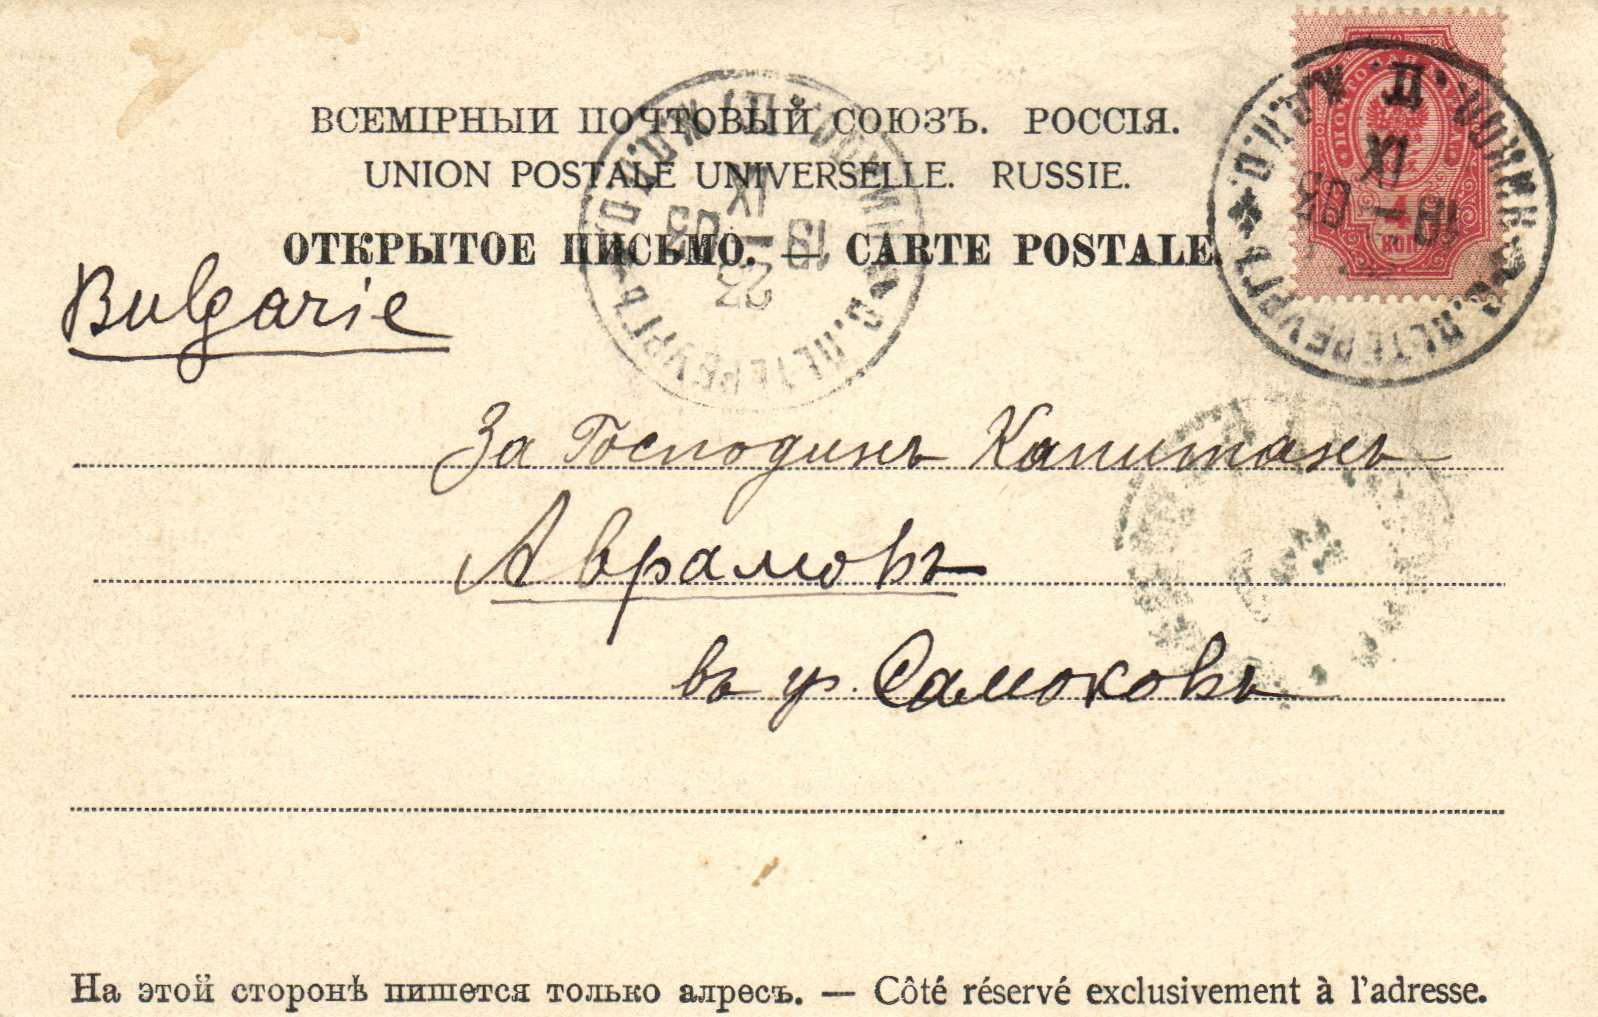 ВСЕМІРНЫЙ ПОЧТОВЫЙ СОЮЗЪ. РОССІЯ.
UNION POSTALE UNIVERSELLE. RUSSIE.
ОТКРЫТОЕ ПИСЬМО. — CARTE POSTALE.
Bulgarie
За Господинъ Капитанъ
Аврамовъ
въ гр. Самоковъ
На этой сторонѣ пишется только адресъ. — Côté réservé exclusivement à l'adresse.
С.ПЕТЕРБУРГЪ
XI
13 03
23
С.ПЕТЕРБУРГЪ
XI
03
4
КОП